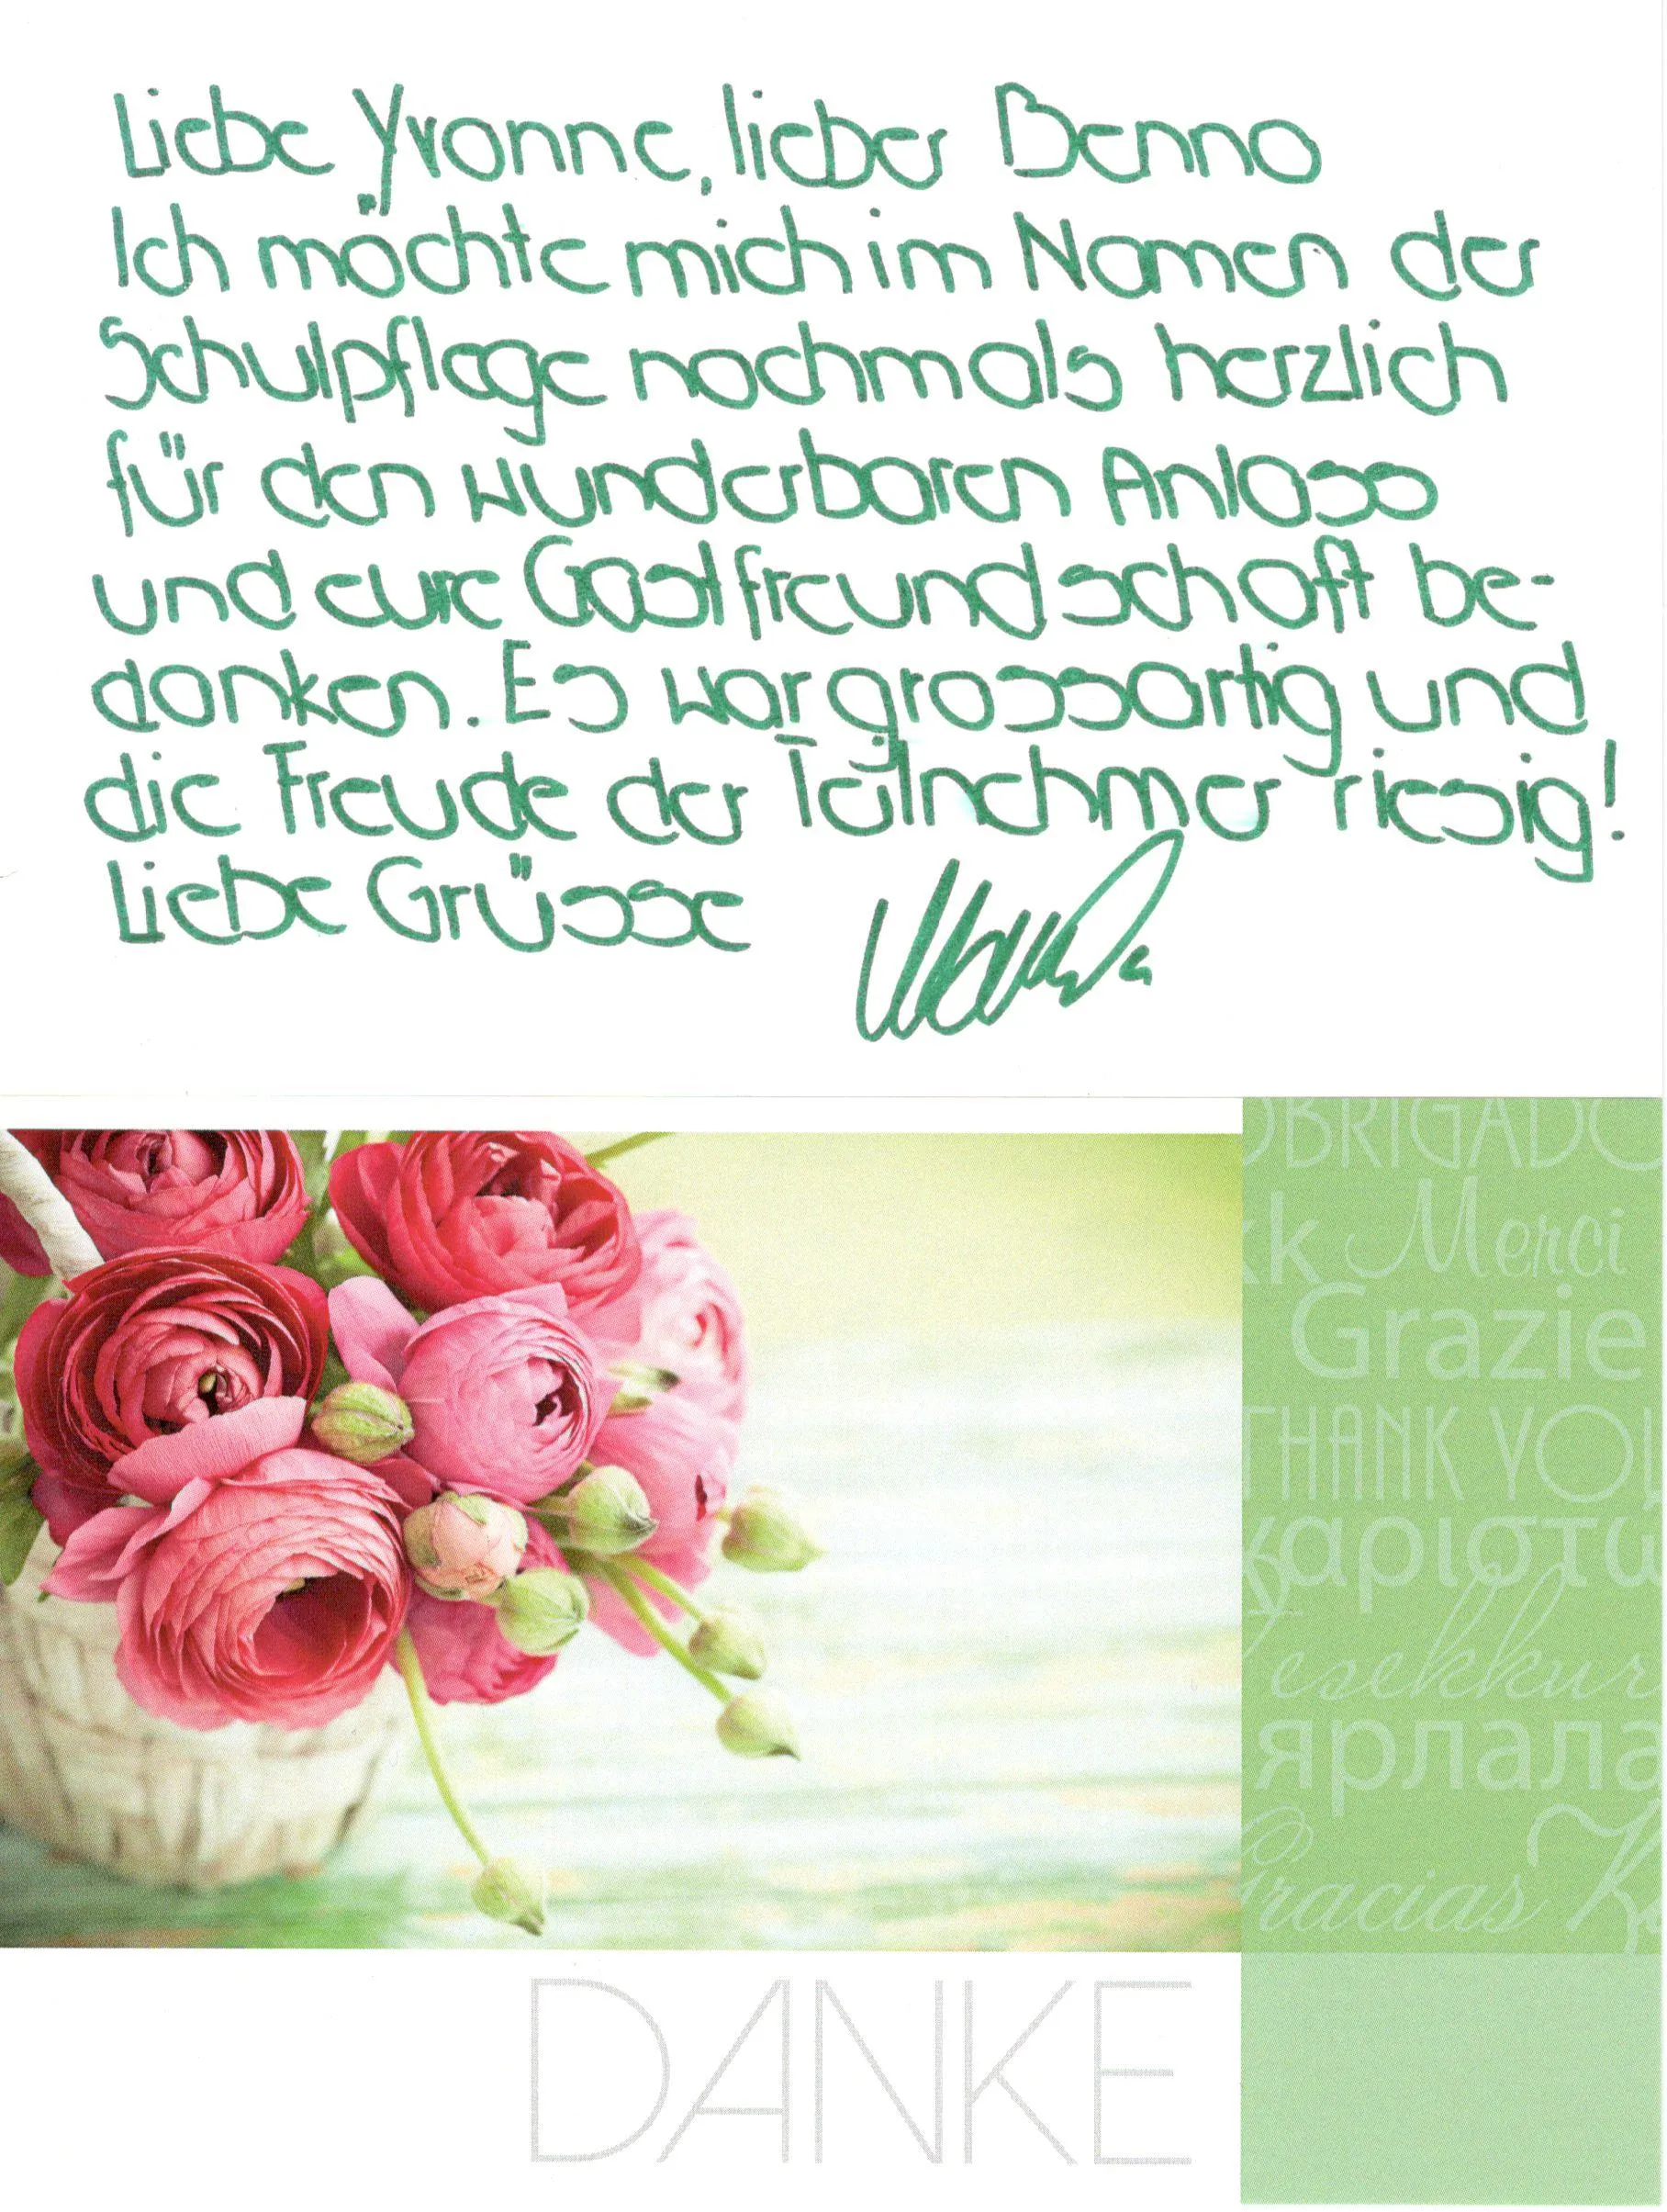 Liebe Yvonne, lieber Benno
Ich möchte mich im Namen der
Schulpflege nochmals herzlich
für den wunderbaren Anlass
und eure Gastfreundschaft be-
danken. Es war grossartig und
die Freude der Teilnehmer riesig!
Liebe Grüsse
OBRIGADO
kk Merci
Grazie
THANK YOU
χαριστώ
esekkur
ярлала
Gracias
DANKE